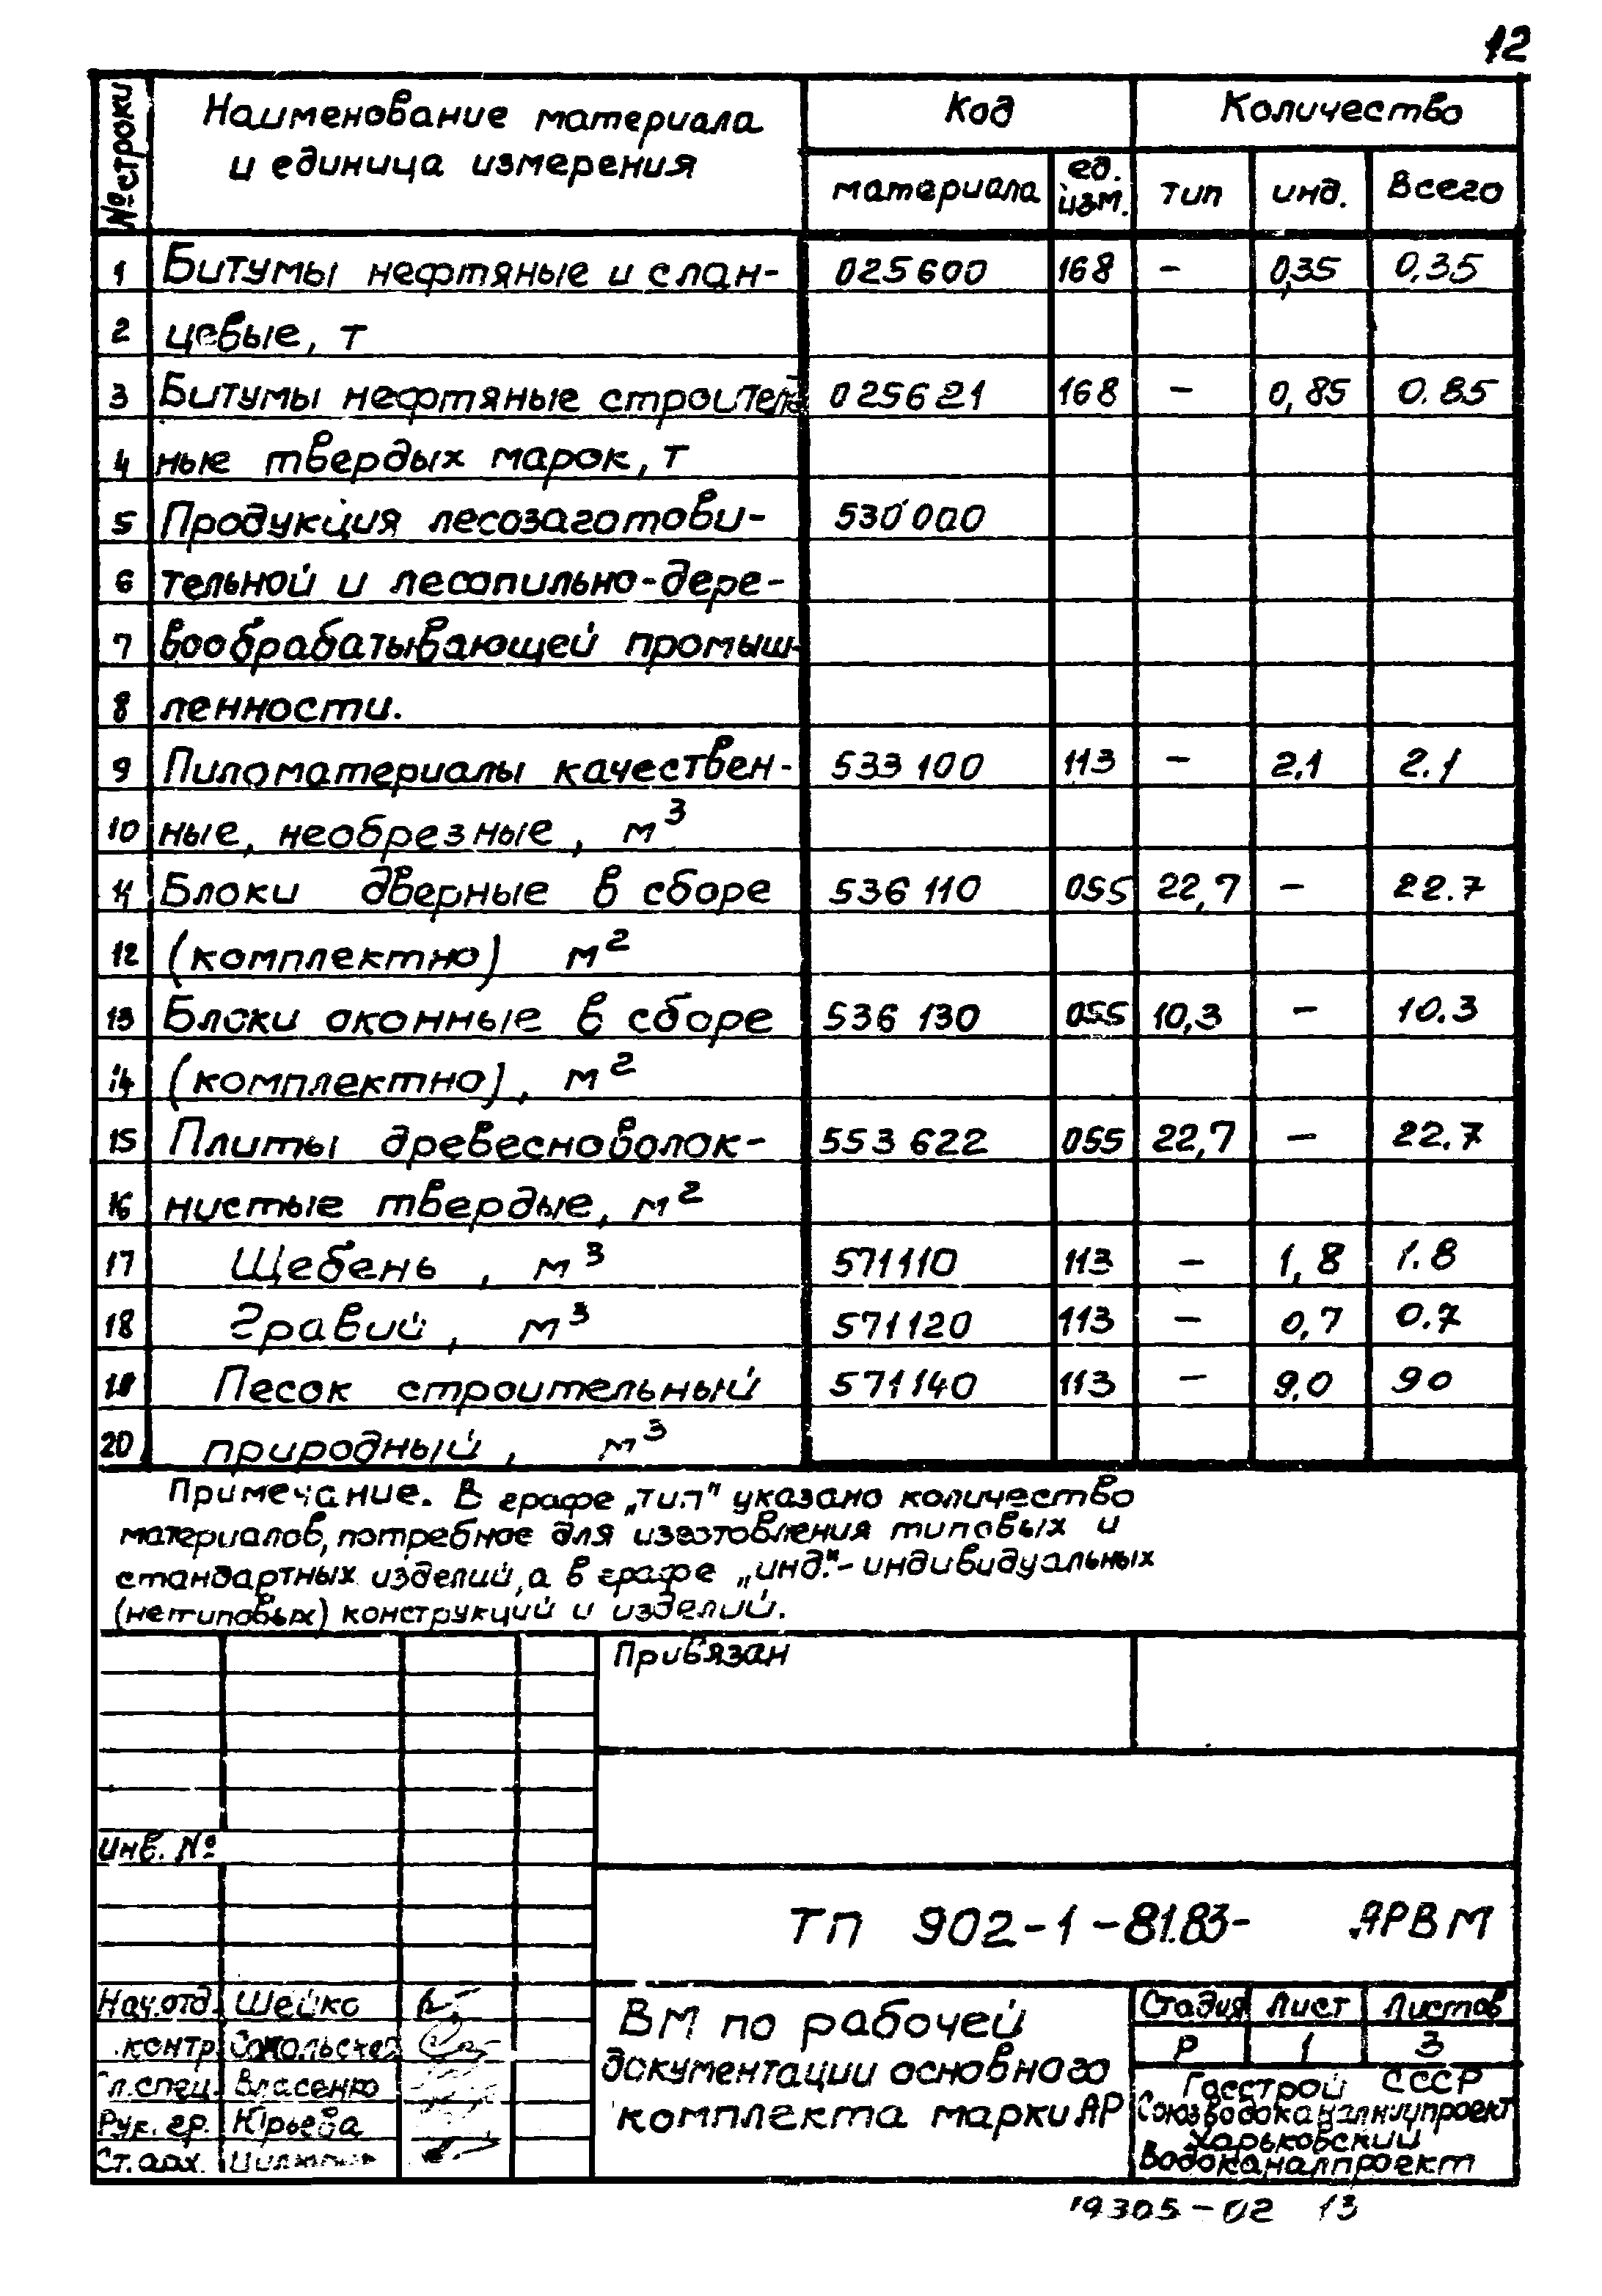 12
№ строки
Наименование материала и единица измерения
Код
Количество
материала
ед. изм.
тип
инд.
Всего
1 Битумы нефтяные и слан- 025600 168 - 0,35 0,35
2 цевые, т
3 Битумы нефтяные строитель 025621 168 - 0,85 0.85
4 ные твердых марок, т
5 Продукция лесозаготови- 530000
6 тельной и лесопильно-дере-
7 вообрабатывающей промыш-
8 ленности.
9 Пиломатериалы качествен- 533 100 113 - 2.1 2.1
10 ные, необрезные, м3
11 Блоки дверные в сборе 536 110 055 22,7 - 22.7
12 (комплектно) м2
13 Блоки оконные в сборе 536 130 055 10,3 - 10.3
14 (комплектно), м2
15 Плиты древесноволок- 553 622 055 22,7 - 22.7
16 нистые твердые, м2
17 Щебень, м3 571110 113 - 1,8 1.8
18 Гравий, м3 571120 113 - 0,7 0.7
19 Песок строительный 571140 113 - 9,0 90
20 природный, м3
Примечание. В графе „тип" указано количество
материалов, потребное для изготовления типовых и
стандартных изделий, а в графе „инд."- индивидуальных
(нетиповых) конструкций и изделий.
Привязан
Инв. №
ТП 902-1-81.83- АРВМ
Нач.отд. Шейко
контр.
Гл.спец. Власенко
Рук. гр. Юрьева
Ст. арх.
ВМ по рабочей
документации основного
комплекта марки АР
Стадия Лист Листов
Р 1 3
Госстрой СССР
Союзводоканалниипроект
Харьковский
Водоканалпроект
19305-02 13